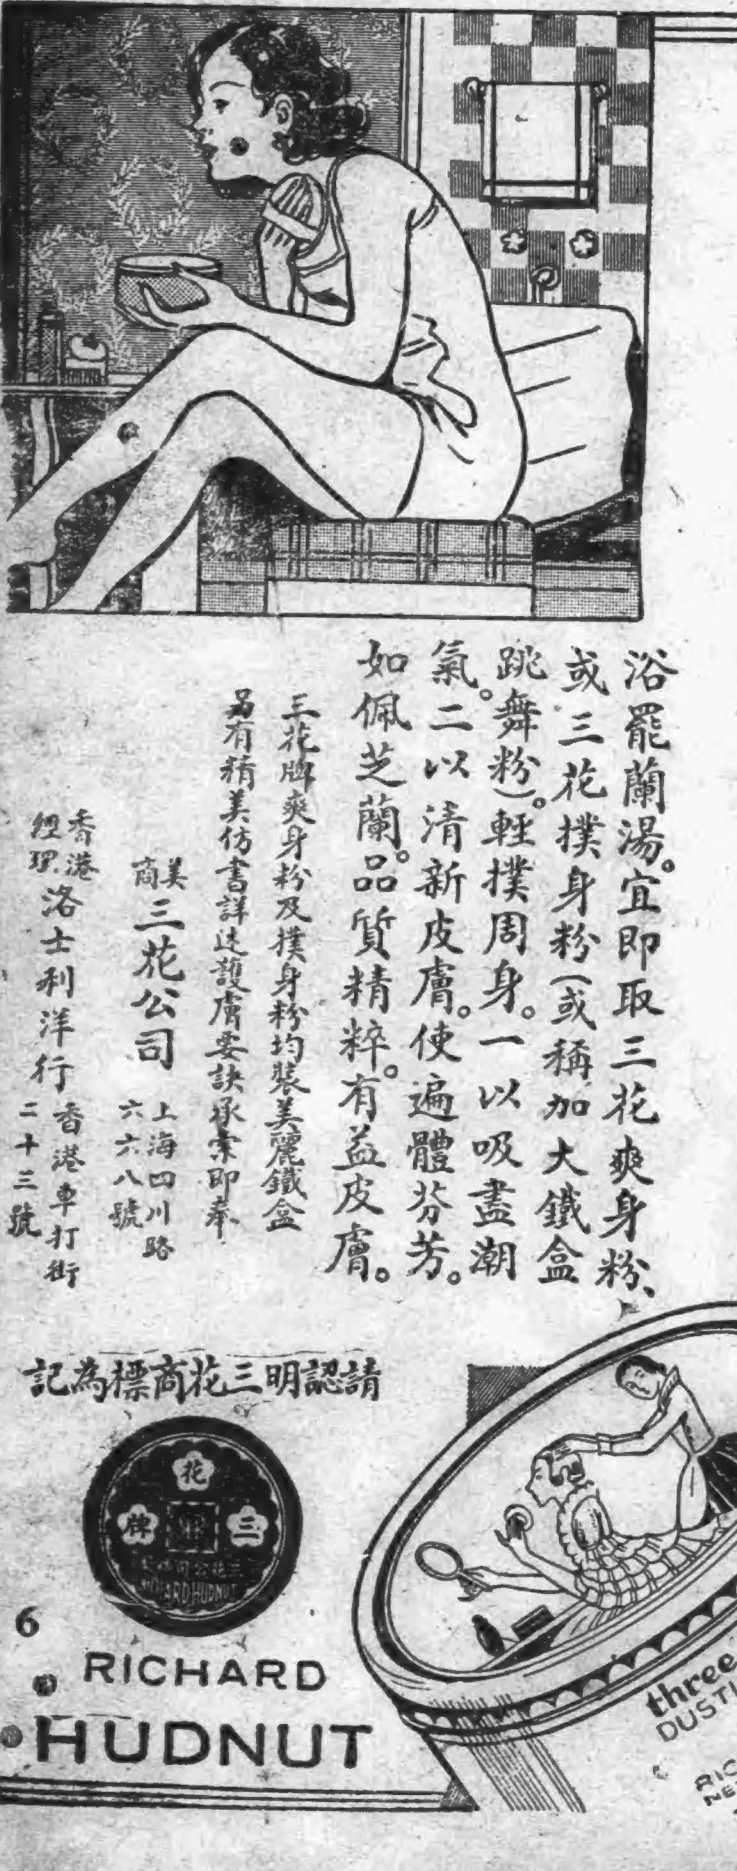 浴罷蘭湯。宜即取三花爽身粉、
或三花撲身粉（或稱加大鐵盒
跳舞粉）。輕撲周身。一以吸盡潮
氣。二以清新皮膚。使遍體芬芳。
如佩芝蘭。品質精粹。有益皮膚。
三花牌爽身粉及撲身粉均裝美麗鐵盒
另有精美仿書詳述護膚要訣承索即奉
美商
三花公司
上海四川路
六六八號
香港經理
洛士利洋行
香港車打街
二十三號
請認明三花商標為記
三花牌
RICHARD HUDNUT
6
RICHARD
HUDNUT
three
DUSTI
RIC
NE